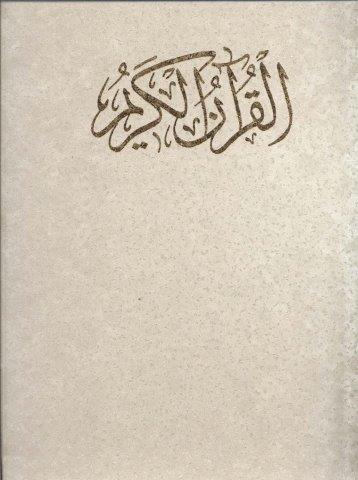 القُرْآنُ الكَرِيمُ